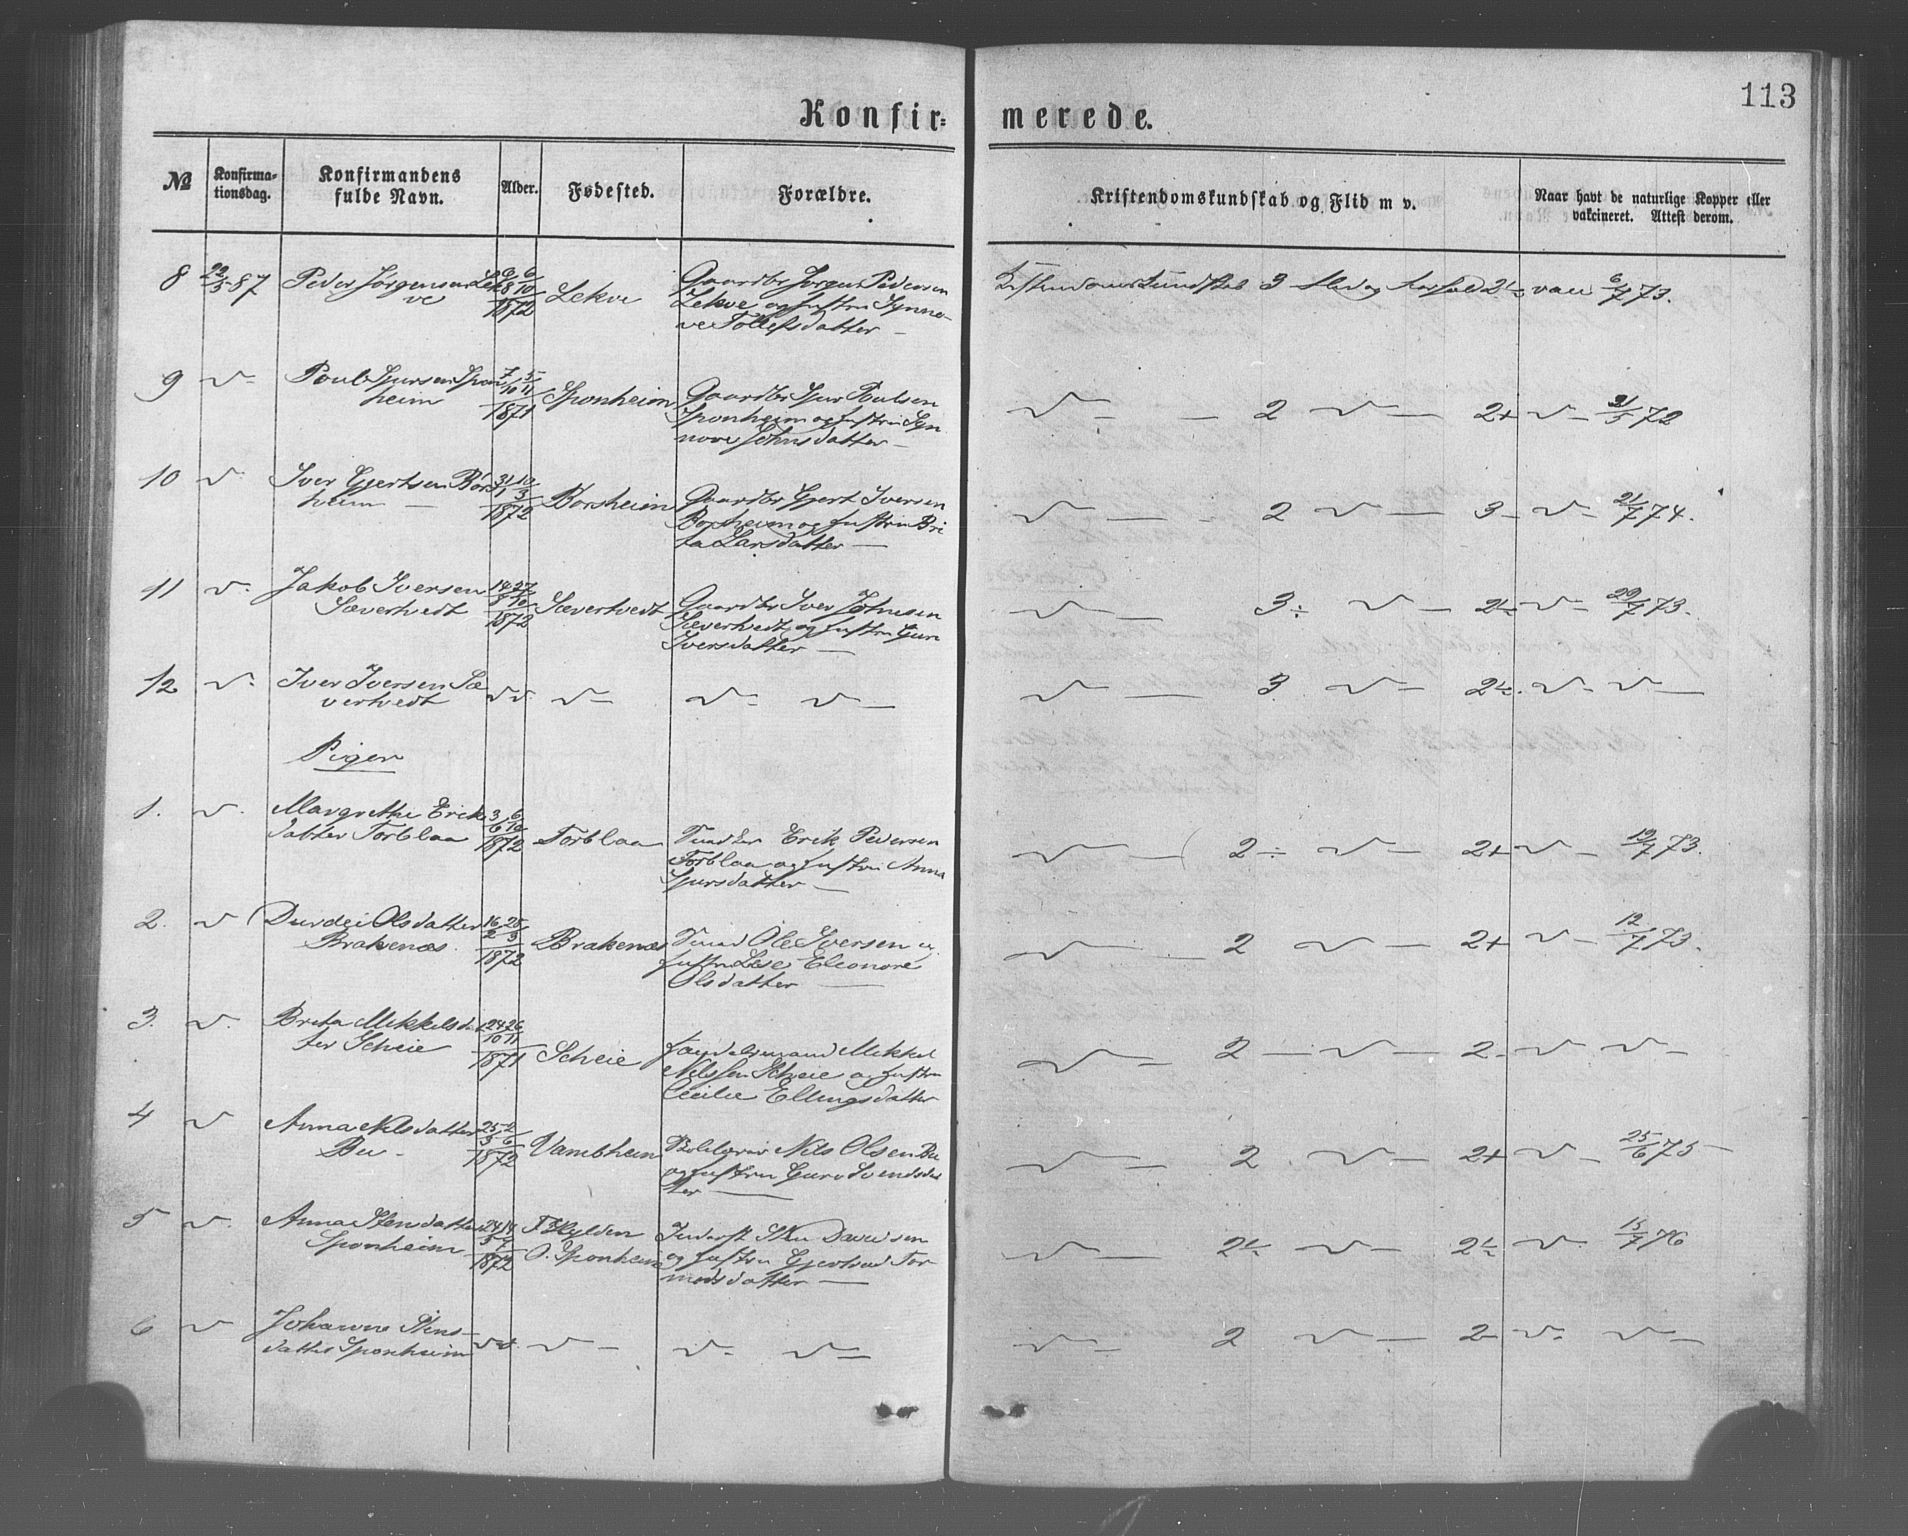 113
Konfir=
merede.
№
Konfirma-
tionsdag.
Konfirmandens
fulde Navn.
Alder.
Fødested.
Forældre.
Kristendomskundskab og Flid m v.
Naar havt de naturlige Kopper eller
vakcineret. Attest derom.
8 22/5 87 Peder Jørgensen Lek
ve
1872
Lekve
Gaardbr Jørgen Pedersen
Lekve og hustru Synne-
ve Tollefsdatter —
3 2½ vac 6/7 73.
9 Poul Sjursen Spon
heim
7/10 5/11
1871
Sponheim
Gaardbr Sjur Poulsen
Sponheim og hustru Syn
nove Johnsdatter —
2 2+ 72
10 Iver Gjertsen Børs
heim —
1872
Borsheim
Gaardbr Gjert Iversen
Borsheim og hustru Bri
ta Larsdatter —
2 3- 21/7 74.
11 Jakob Iversen
Sæverhvedt
14/8 27/10
1872
Sæverhvedt
Gaardbr Iver Johnsen
Sæverhvedt og hustru Guri
Iversdatter —
3 ÷ 2½ 29/7 73.
12 Iver Iversen Sæ
verhvedt
3 2½
Piger
1. Margrethe Erik
datter Torblaa
3/6 6/10
1872
Torblaa
Erik Pedersen
Torblaa og hustru Anna
Sjursdatter —
2 ÷ 2+ 19/7 73.
2. Durdei Olsdatter
Brakenæs.
16/2 25/3
1872
Brakenæs
Ole Iversen og
hustru Lise Eleonore
Olsdatter —
2 2+ 12/7 73.
3. Brita Mikkelsdat
ter Scheie
24/10 26/11
1871
Scheie
Føydelsmand Mikkel
Nilssen Scheie og hustru
Cecilie Ellingsdatter
2 2-
4 Anna Nilsdatter
Bu -
1872
Vambheim
Nils Olsen Bu
og hustru Guro Svendsdat
ter —
2 2+ 25/6 75
5 Anna Stensdatter
Sponheim
1872
F. Kylden
O. Sponheim
Inderst Sten Davidsen
og hustru Gjertrud Tor
modsdatter —
2½ 2½ 15/7 76
6 Johanne Stens-
datter Sponheim
2 2-